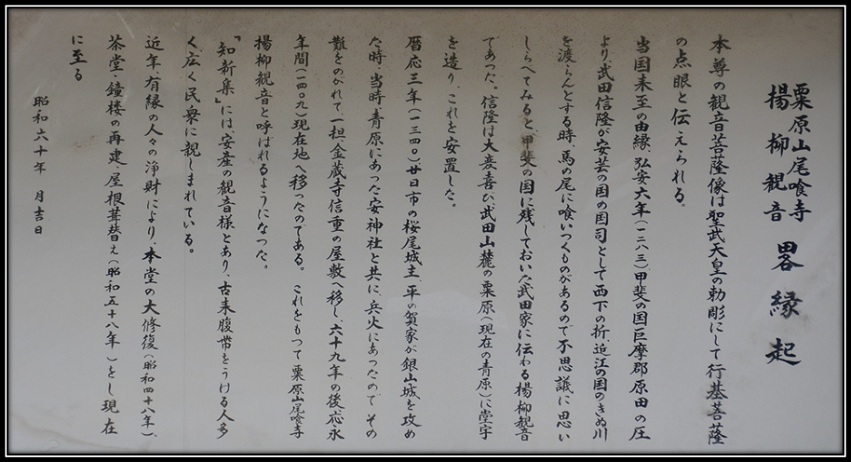 栗原山尾喰寺
楊柳観音
畧縁起
本尊の観音菩薩像は聖武天皇の勅彫にして行基菩薩
の点眼と伝えられる。
当国来至の由縁、弘安六年(一二八三)甲斐の国巨摩郡原田の庄
より、武田信隆が安芸の国の国司として西下の折、近江の国のきぬ川
を渡らんとする時、馬の尾に喰いつくものがあるので不思議に思い
しらべてみると、甲斐の国に残しておいた武田家に伝わる楊柳観音
であった。信隆は大変喜び、武田山麓の栗原(現在の青原)に堂宇
を造り、これを安置した。
暦応三年(一三四〇)廿日市の桜尾城主、平の賀家が銀山城を攻め
た時、当時、青原にあった安神社と共に、兵火にあったので、その
難をのがれて、一担、金蔵寺信重の屋敷へ移し、六十九年の後、応永
年間(一四〇九)現在地へ移ったのである。これをもって栗原山尾喰寺
楊柳観音と呼ばれるようになった。
「知新集」には安産の観音様とあり、古来腹帯をうける人多
く、広く民衆に親しまれている。
近年、有縁の人々の浄財により、本堂の大修復(昭和四十八年)、
茶堂・鐘楼の再建、屋根葺替え(昭和五十八年)をし現在
に至る
昭和六十年 月吉日